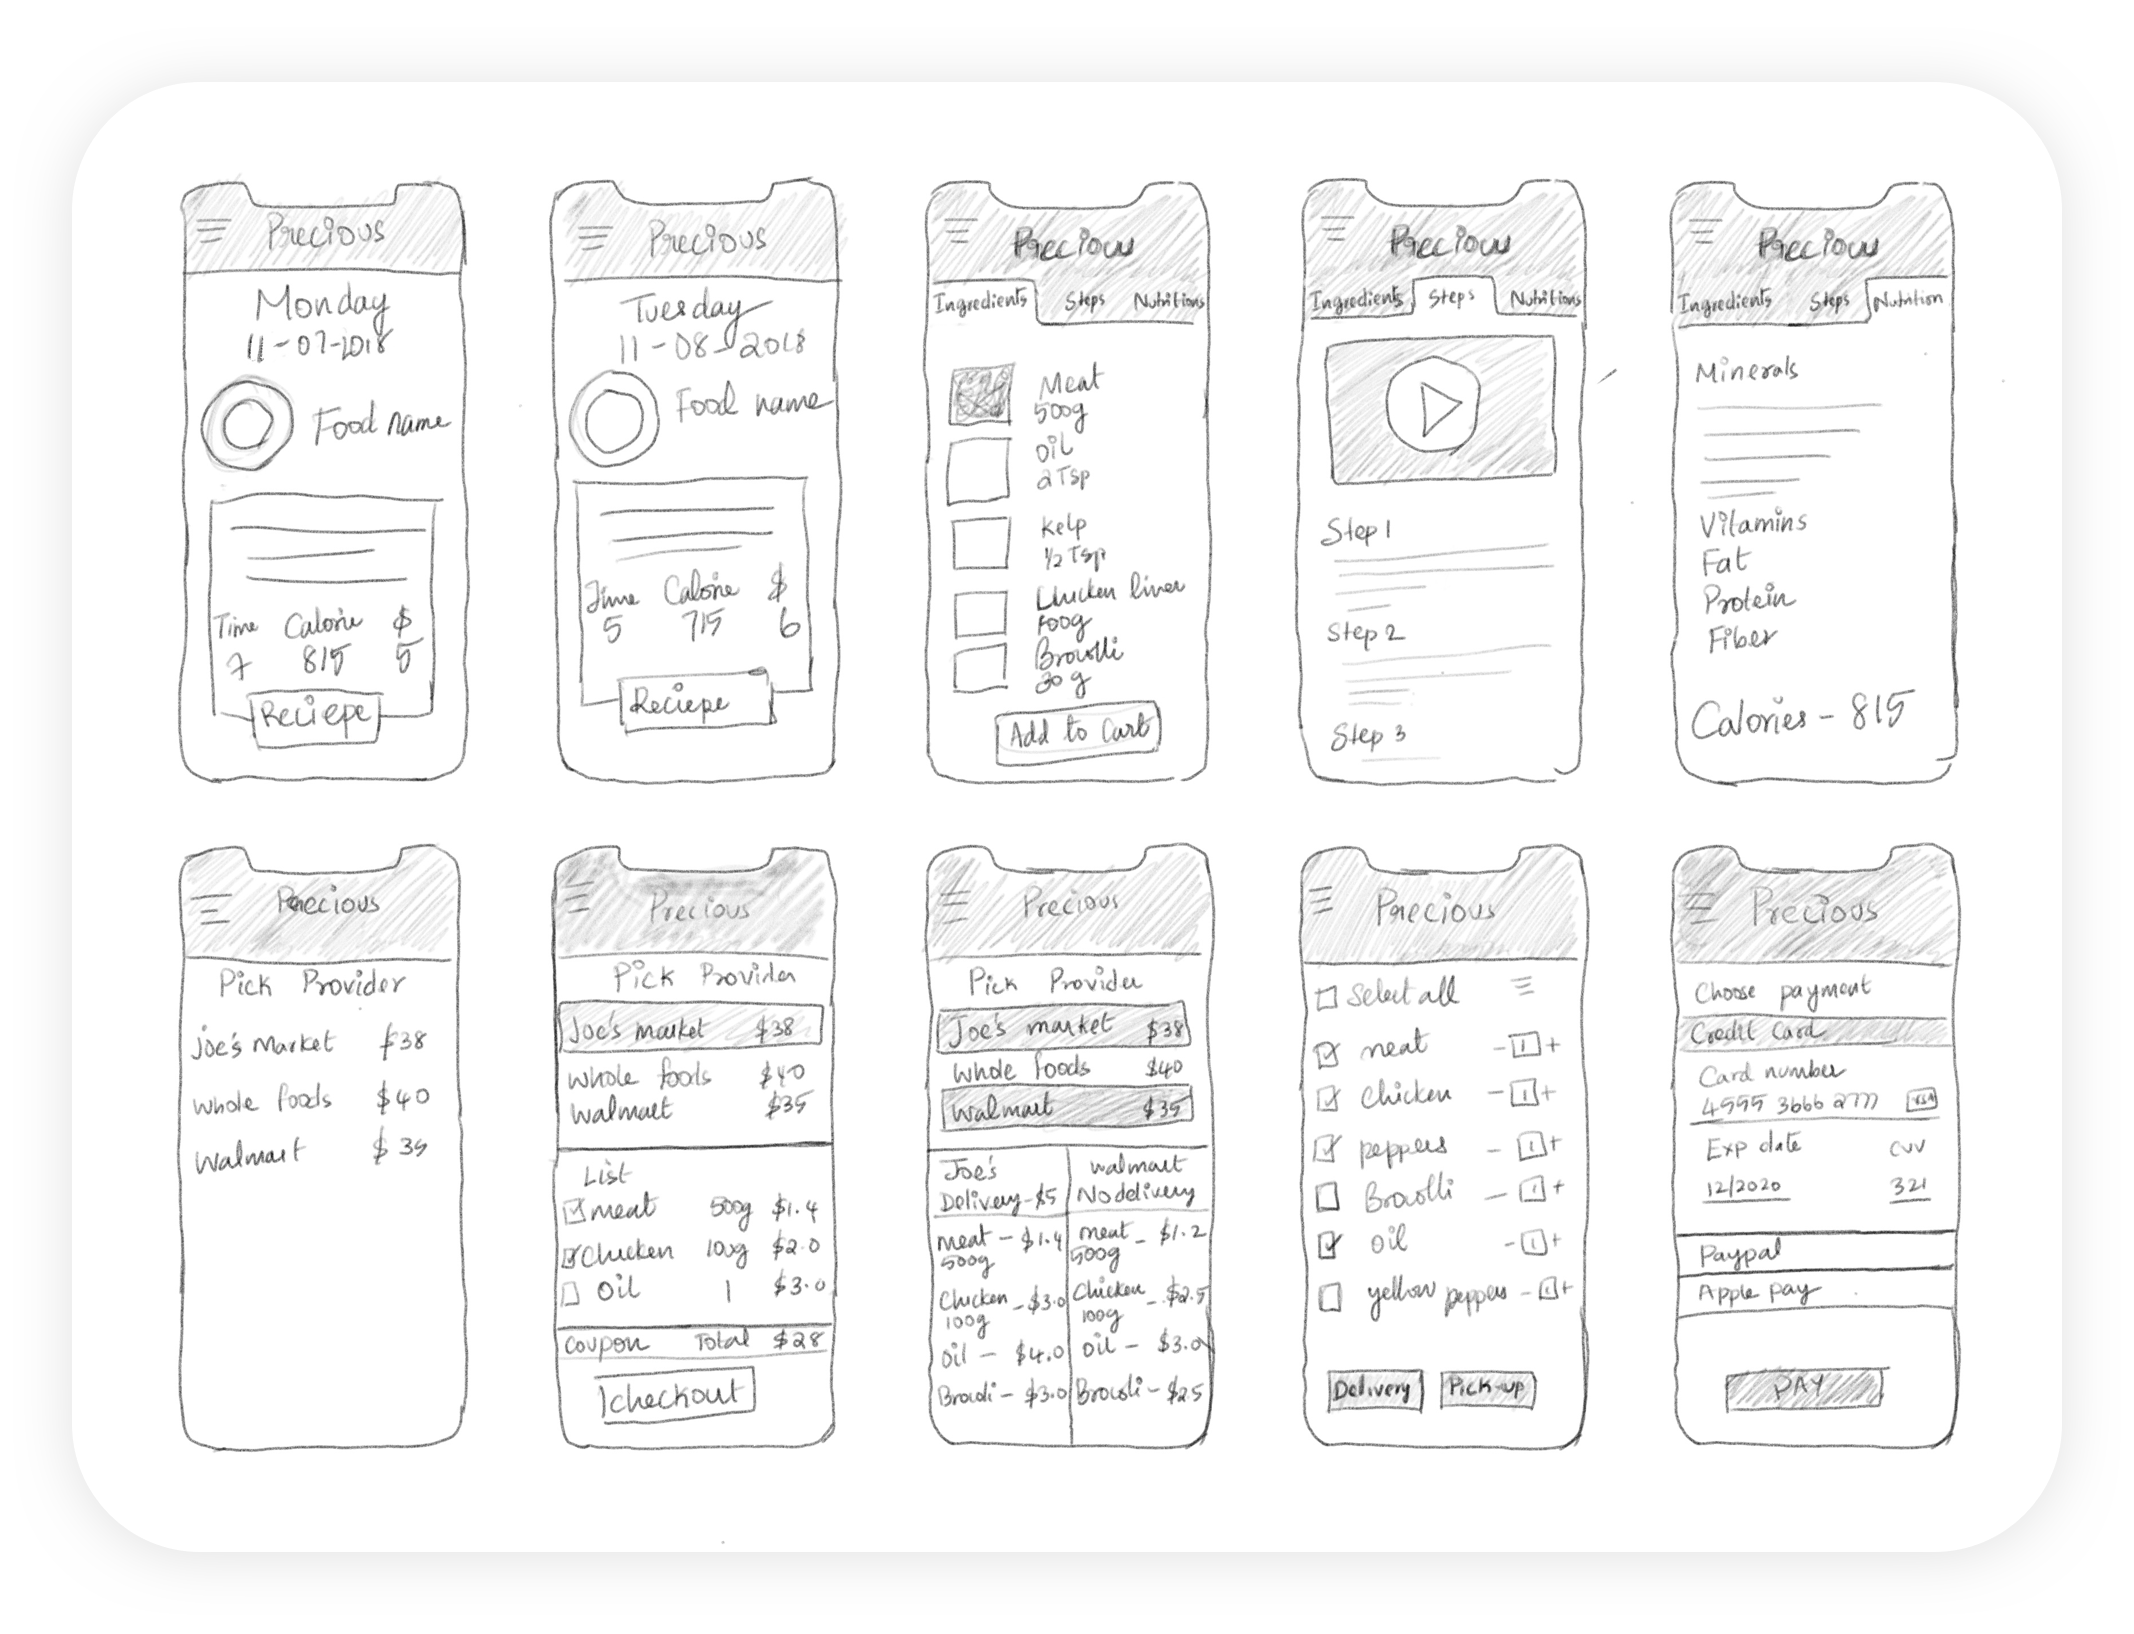 Precious
Monday
11-07-2018
Food name
Time Calorie $
7 815 5
Reciepe
Precious
Tuesday
11-08-2018
Food name
Time Calorie $
5 715 6
Reciepe
Precious
Ingredients Steps Nutritions
Meat
500g
Oil
2 Tsp
Kelp
1/2 Tsp
Chicken liver
100g
Brocolli
30 g
Add to Cart
Precious
Ingredients Steps Nutritions
Step 1
Step 2
Step 3
Precious
Ingredients Steps Nutrition
Minerals
Vitamins
Fat
Protein
Fiber
Calories - 815
Precious
Pick Provider
Joe's Market $38
Whole foods $40
Walmart $35
Precious
Pick Provider
Joe's market $38
Whole foods $40
Walmart $35
List
meat 500g $1.4
Chicken 100g $2.0
Oil 1 $3.0
Coupon Total $28
checkout
Precious
Pick Provider
Joe's market $38
Whole foods $40
Walmart $35
Joe's
Delivery - $5
meat - $1.4
500g
Chicken - $3.0
100g
Oil - $4.0
Brocoli - $3.0
Walmart
No delivery
meat - $1.2
500g
Chicken - $2.5
100g
Oil - $3.0
Brocoli - $2.5
Precious
Select all
meat - 1 +
Chicken - 1 +
peppers - 1 +
Brocolli - 1 +
oil - 1 +
yellow peppers - 1 +
Delivery Pick-up
Precious
Choose payment
Credit Card
Card number
VISA
Exp date CVV
12/2020 321
Paypal
Apple pay
PAY